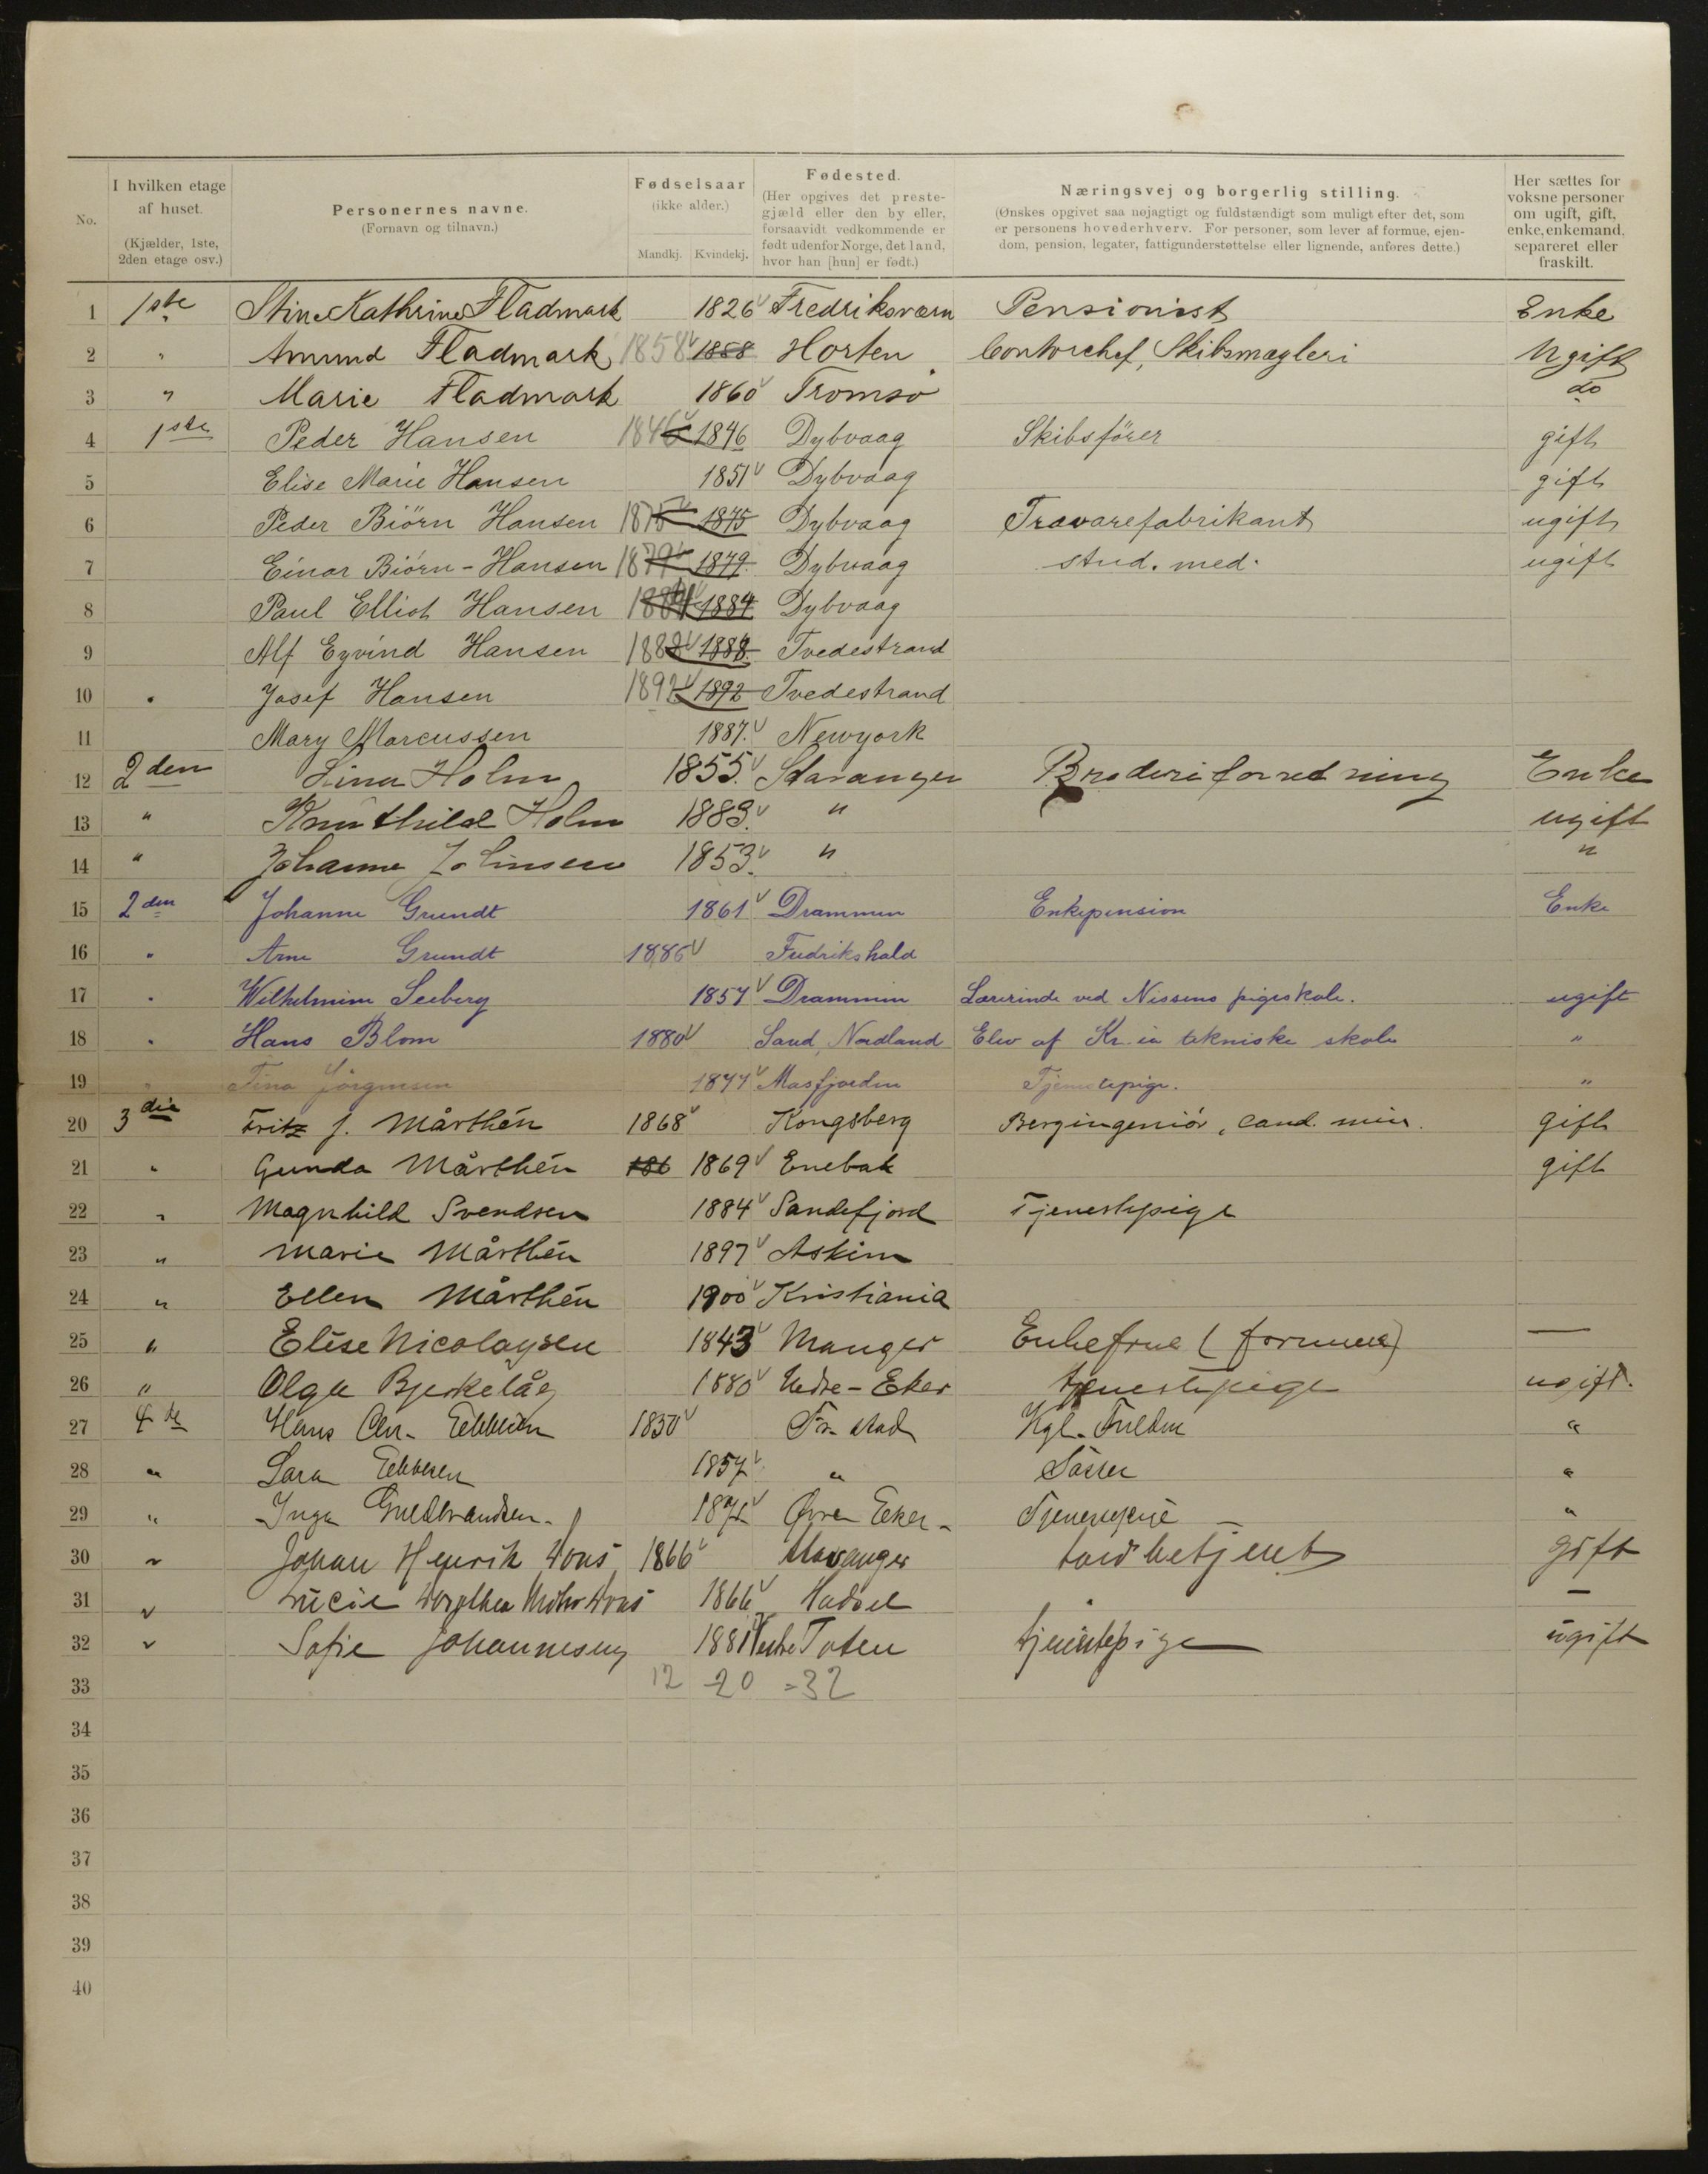 No. | I hvilken etage af huset. (Kjælder, 1ste, 2den etage osv.) | Personernes navne. (Fornavn og tilnavn.) | Fødselsaar (ikke alder.) Mandkj. Kvindekj. | Fødested. (Her opgives det prestegjæld eller den by eller, forsaavidt vedkommende er født udenfor Norge, det land, hvor han [hun] er født.) | Næringsvej og borgerlig stilling. (Ønskes opgivet saa nøjagtigt og fuldstændigt som muligt efter det, som er personens hovederhverv. For personer, som lever af formue, ejendom, pension, legater, fattigunderstøttelse eller lignende, anføres dette.) | Her sættes for voksne personer om ugift, gift, enke, enkemand, separeret eller fraskilt.
1 1ste Stine Kathrine Fladmark 1826 Fredriksværn Pensionist Enke
2 " Amund Fladmark 1858 1858 Horten Contorchef, Skibsmægleri Ugift
3 " Marie Fladmark 1860 Tromsø do
4 1ste Peder Hansen 1846 1846 Dybvaag Skibsfører gift
5 Elise Marie Hansen 1851 Dybvaag gift
6 Peder Biörn Hansen 1875 1875 Dybvaag Trævarefabrikant ugift
7 Einar Biörn-Hansen 1879 1879. Dybvaag stud. med. ugift
8 Paul Elliot Hansen 1884 1884 Dybvaag
9 Alf Eyvind Hansen 1888 1888. Tvedestrand
10 " Josef Hansen 1892 1892 Tvedestrand
11 Mary Marcussen 1887. Newyork
12 2den Lina Holm 1855. Stavanger Broderiforretning Enke
13 " Holm 1883. " ugift
14 " Johanne Johnsen 1853. " "
15 2den Johanne Grundt 1861 Drammen Enkepension Enke
16 " Arne Grundt 1886 Fredrikshald
17 " Wilhelmine Seeberg 1857 Drammen Lærerinde ved Nissens pigeskole. ugift
18 " Hans Blom 1880 Sand, Nordland Elev af Kr.ia tekniske skole "
19 " Tina Jörgensen 1877 Masfjorden Tjenestepige. "
20 3die Fritz J. Mårthén 1868 Kongsberg Bergingeniør, cand. min. gift
21 " Gunda Mårthén 186 1869 Enebak gift
22 " Magnhild Svendsen 1884 Sandefjord Tjenestepige
23 " Marie Mårthén 1897 Askim
24 " Ellen Mårthén 1900 Kristiania
25 " Elise Nicolaysen 1843 Manger Enkefrue (formue) —
26 " Olga Bjerkelåg 1880 Nedre-Eker tjenestepige ugift.
27 4de Hans Chr. Ebbesen 1850 Fr.stad Kgl. Fuldm "
28 " Sara Ebbesen 1857 " Søster "
29 " Inga Guldbrandsen. Øvre Eker - Tjenestepige — "
30 " Johan Henrik 1866 Stavanger toldbetjent gift
31 " Dorothea 1866 Hadsel —
32 " Sofie Johannesen 1881 Vestre Toten tjenestepige ugift
33 12 20 = 32
34
35
36
37
38
39
40